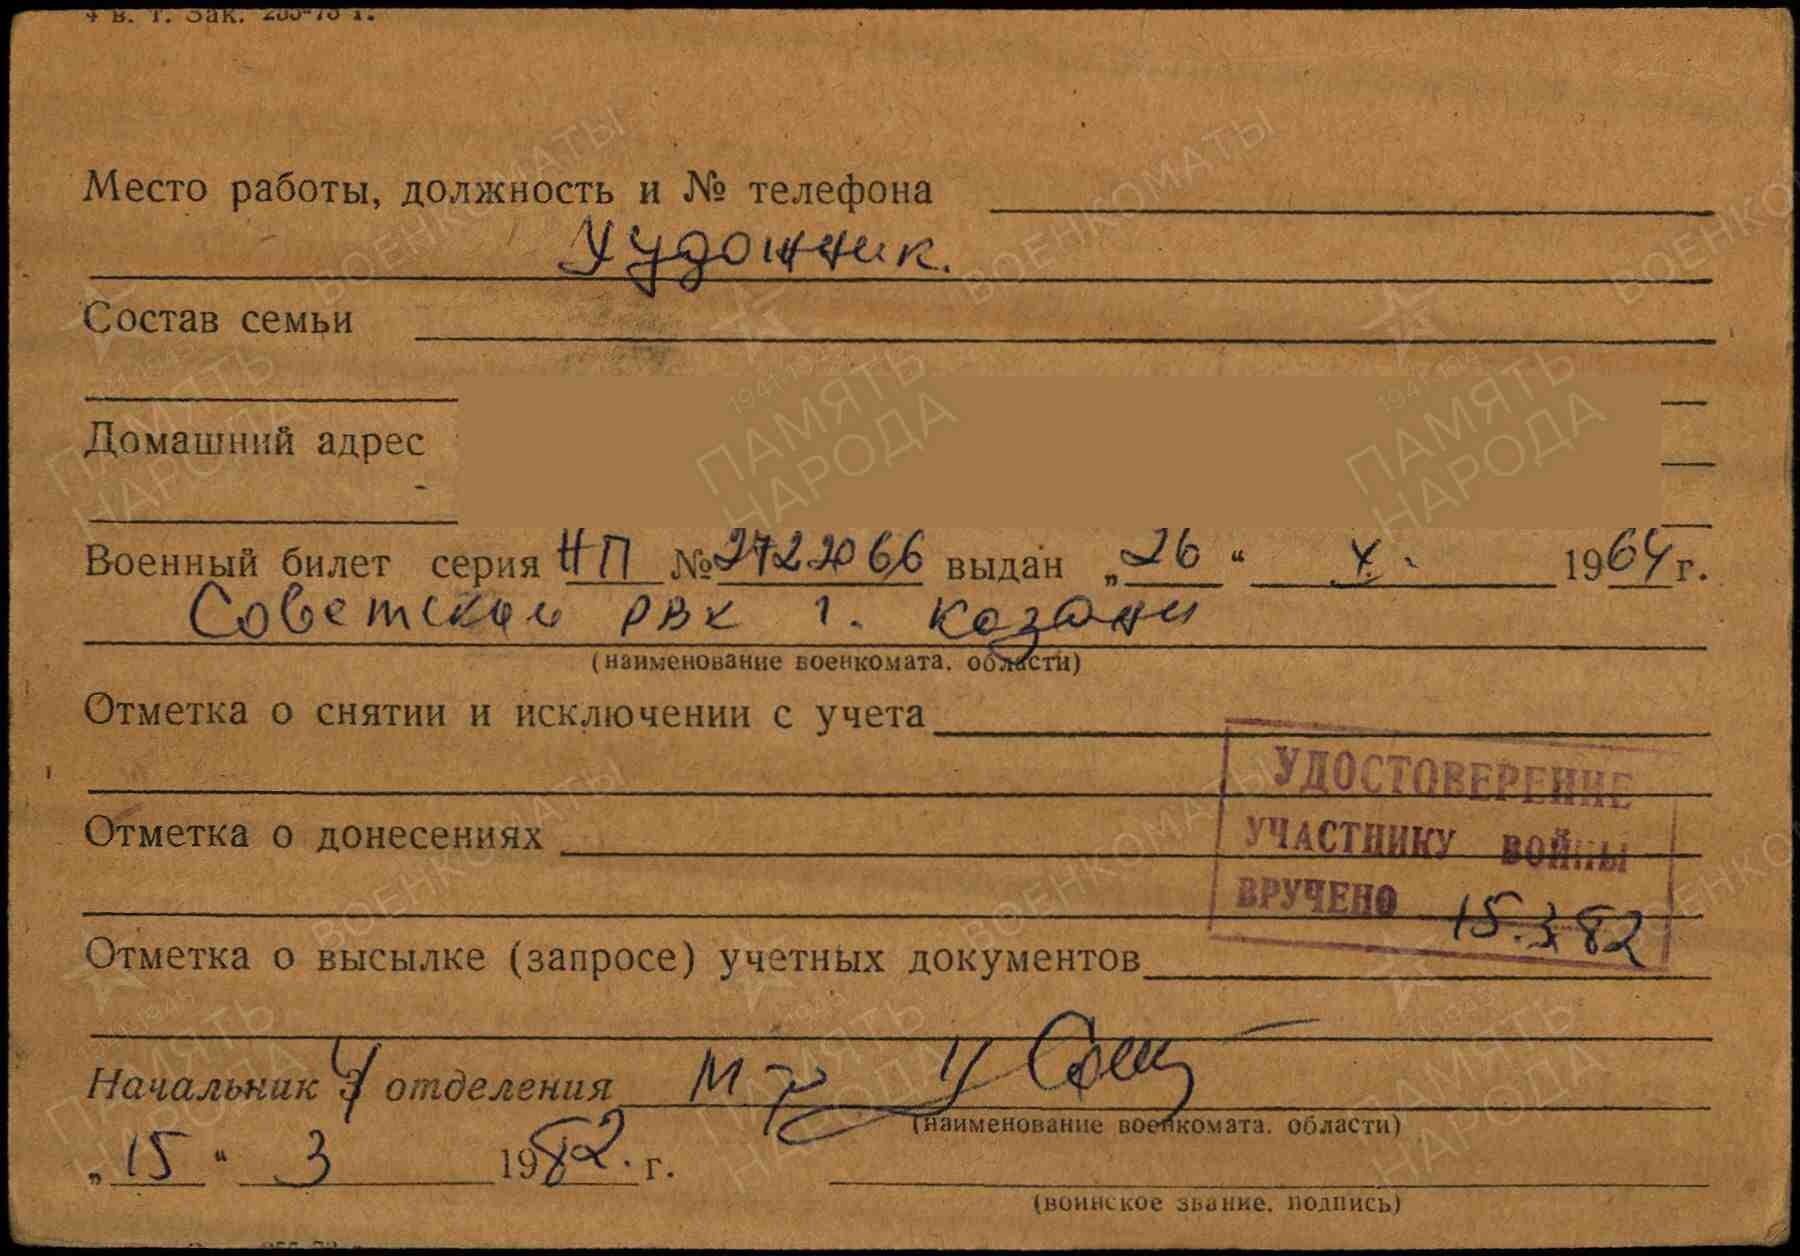 4 в. т. Зак. 255-73 г.
Место работы, должность и № телефона
Художник.
Состав семьи
Домашний адрес
Военный билет серия НП № 2722066 выдан „26“ X. 1964 г.
Советским РВК г. Казани
(наименование военкомата, области)
Отметка о снятии и исключении с учета
УДОСТОВЕРЕНИЕ
Отметка о донесениях
УЧАСТНИКУ ВОЙНЫ
ВРУЧЕНО 15.3.82
Отметка о высылке (запросе) учетных документов
Начальник 4 отделения м-р
(наименование военкомата, области)
„15“ 3 1982. г.
(воинское звание, подпись)
1941-1945
ПАМЯТЬ НАРОДА
ВОЕНКОМАТЫ